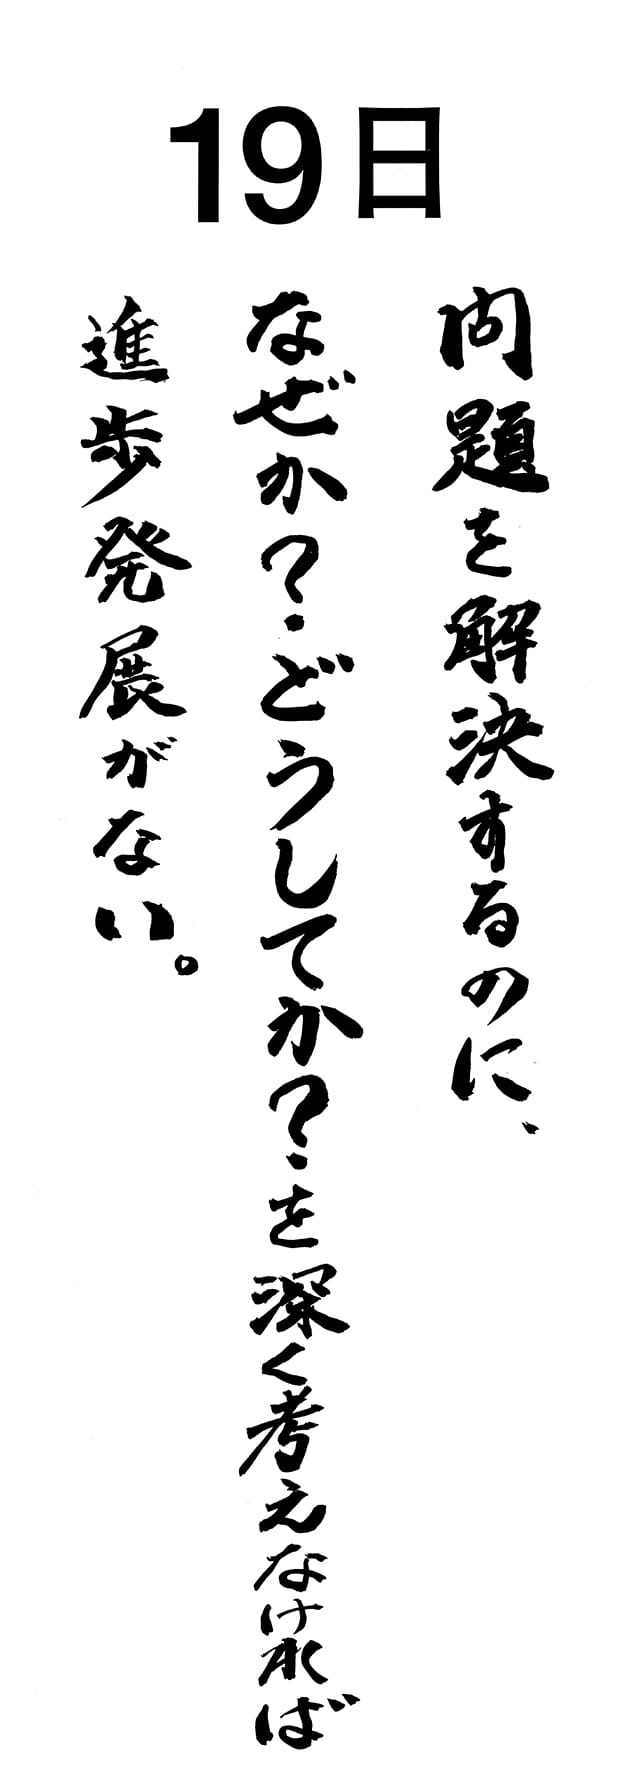 19日
問題を解決するのに、
なぜか?どうしてか?を深く考えなければ
進歩発展がない。